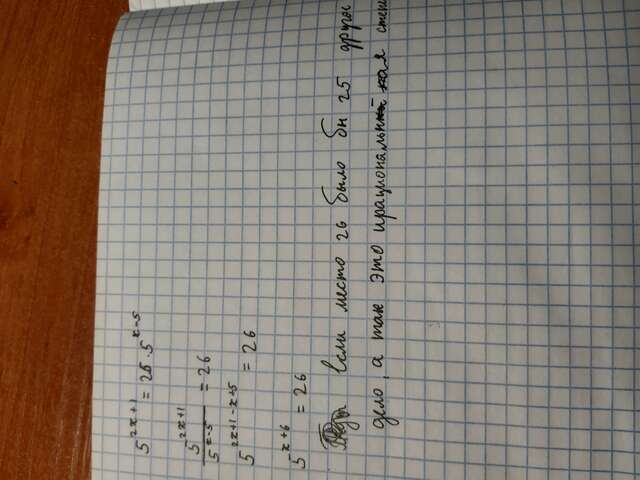 5^{2x+1} = 26 · 5^{x-5}
5^{2x+1} / 5^{x-5} = 26
5^{2x+1-x+5} = 26
5^{x+6} = 26
Если место 26 было бы 25 другое
дело, а так это ирациональная степ